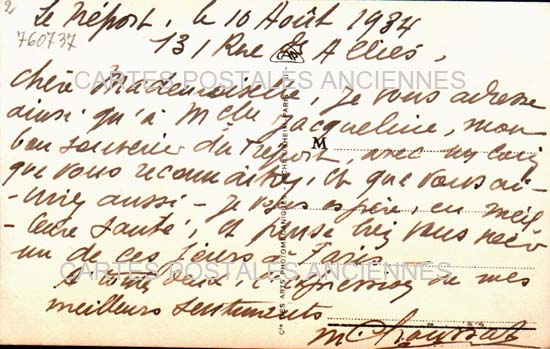 2
Le Tréport, le 10 Août 1934
760737
131 Rue des Alliés,
chère Mademoiselle, je vous adresse
ainsi qu'à Mlle Jacqueline, mon
bon souvenir du Tréport, avec un coin
M
que vous reconnaitrez, et que vous ai-
-miez aussi - je vous espère, en meil-
-leure santé, et pense bien vous revoir
un de ces jours à Paris
A toutes deux, l'expression de mes
meilleurs sentiments
CARTES POSTALES ANCIENNES
CARTES POSTALES ANCIENNES
Cie DES ARTS PHOTOMECANIQUES